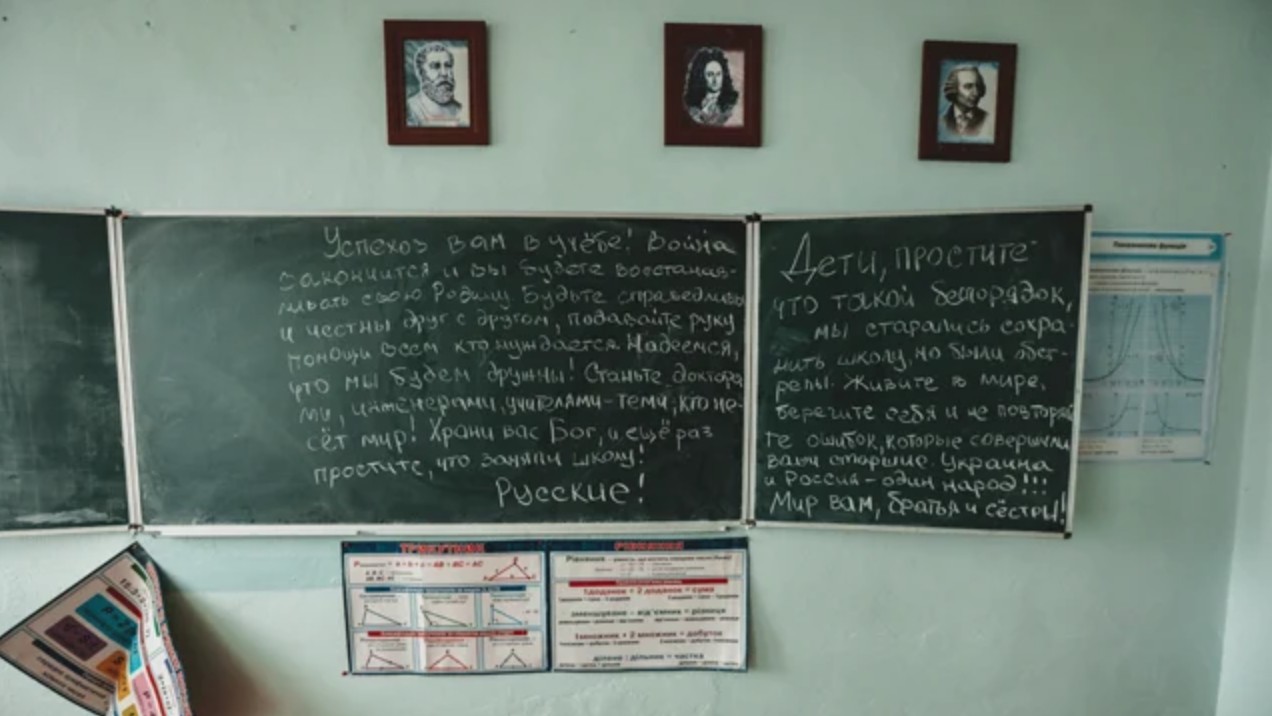 Успехов вам в учёбе! Война
закончится и вы будете восстанав-
ливать свою Родину. Будьте справедливы
и честны друг с другом, подавайте руку
помощи всем кто нуждается. Надеемся,
что мы будем дружны! Станьте доктора-
ми, инженерами, учителями - теми, кто не-
сёт мир! Храни вас Бог, и ещё раз
простите, что заняли школу!
Русские!
Дети, простите
что такой беспорядок,
мы старались сохра-
нить школу, но были обст-
релы. Живите в мире,
берегите себя и не повторяй
те ошибок, которые совершили
ваши старшие. Украина
и Россия - один народ!!!
Мир вам, братья и сёстры!
Показникова функція
ТРИКУТНИКИ
P = a + b + c = AB + BC + AC
РІВНЯННЯ
Рівняння
1доданок + 2 доданок = сума
зменшуване - від'ємник = різниця
1множник • 2 множник = добуток
ділене : дільник = частка